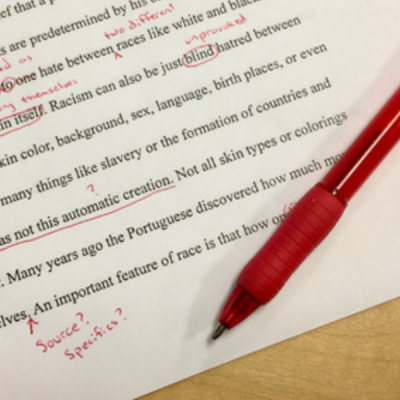 ef that a p
s are predetermined by his o
two different
unprovoked
d as
to one hate between races like white and blac
themselves
in itself. Racism can also be just blind hatred between
kin color, background, sex, language, birth places, or even
many things like slavery or the formation of countries and
?
as not this automatic creation. Not all skin types or colorings
. Many years ago the Portuguese discovered how much mo
elves. An important feature of race is that how on
Source?
Specifics?